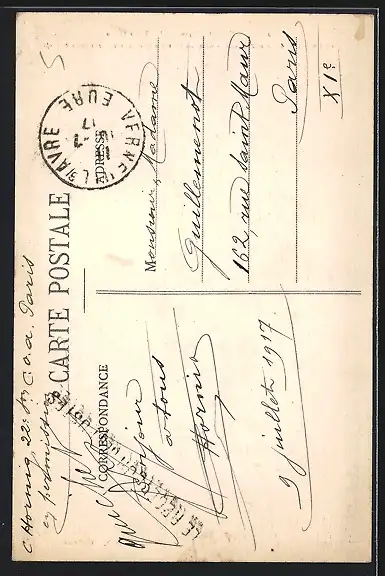 C. Hornig, 22e
C.O.A. Paris
en permission
CARTE POSTALE
CORRESPONDANCE
ADRESSE
VERNEUIL
AVRE
EURE
17
bonjour
à tous
Hornig
9 juillet 1917
Monsieur, Madame
Guillemenot
162, rue Saint Maur
Paris
XIe